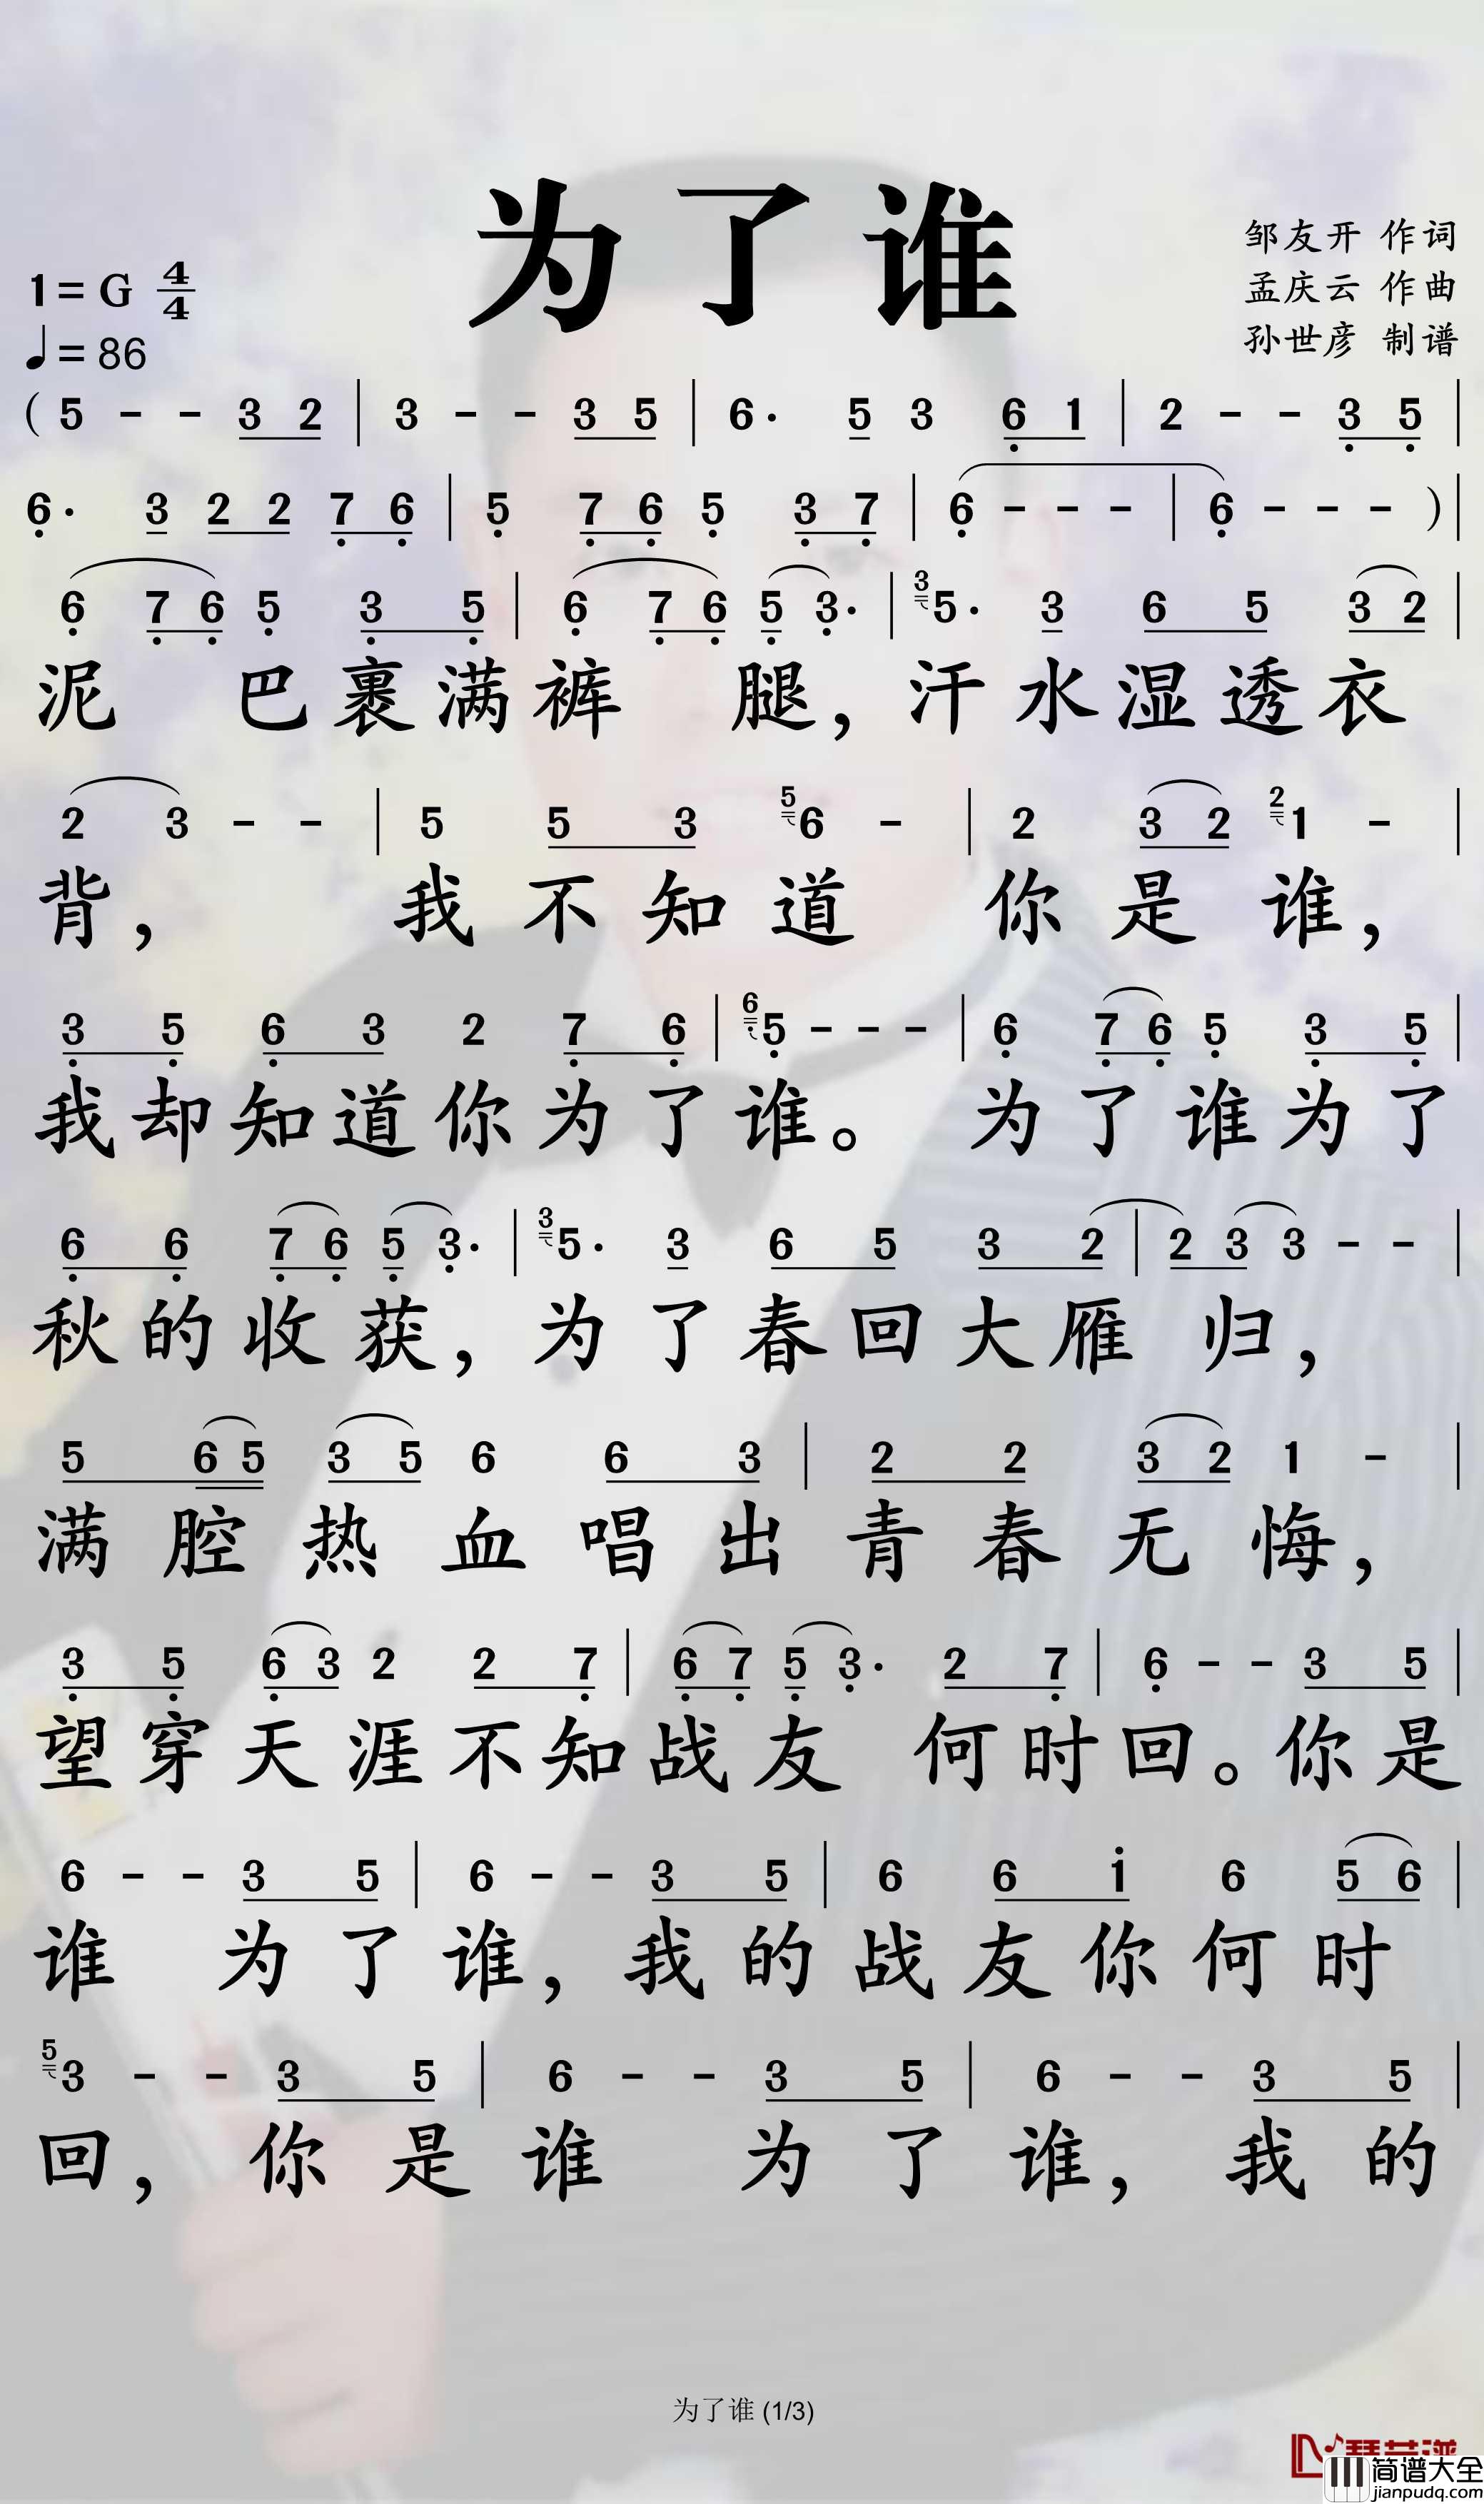 为了谁
邹友开 作词
孟庆云 作曲
孙世彦 制谱
1= G 4/4
♩= 86
( 5 - - 3 2 | 3 - - 3 5 | 6· 5 3 6̣ 1 | 2 - - 3̣ 5̣ |
6̣· 3 2 2 7̣ 6̣ | 5̣ 7̣ 6̣ 5̣ 3̣ 7̣ | 6̣ - - - | 6̣ - - - ) |
6̣ 7̣ 6̣ 5̣ 3̣ 5̣ | 6̣ 7̣ 6̣ 5̣ 3̣· | 3 5· 3 6 5 3 2 |
泥 巴裹满裤 腿，汗水湿透衣
2 3 - - | 5 5 3 5 6 - | 2 3 2 2 1 - |
背， 我不知道 你是谁，
3̣ 5̣ 6̣ 3 2 7̣ 6̣ | 6̣ 5̣ - - - | 6̣ 7̣ 6̣ 5̣ 3̣ 5̣ |
我却知道你为了谁。 为了谁为了
6̣ 6̣ 7̣ 6̣ 5̣ 3̣· | 3 5· 3 6 5 3 2 | 2 3 3 - - |
秋的收获，为了春回大雁 归，
5 6 5 3 5 6 6 3 | 2 2 3 2 1 - |
满腔热血唱出青春无悔，
3̣ 5̣ 6̣ 3 2 2 7̣ | 6̣ 7̣ 5̣ 3̣· 2 7̣ | 6̣ - - 3 5 |
望穿天涯不知战友 何时回。你是
6 - - 3 5 | 6 - - 3 5 | 6 6 1̇ 6 5 6 |
谁 为了谁，我的战友你何时
5 3 - - 3 5 | 6 - - 3 5 | 6 - - 3 5 |
回， 你是谁 为了谁， 我的
为了谁 (1/3)
简谱大全
jianpudq.com